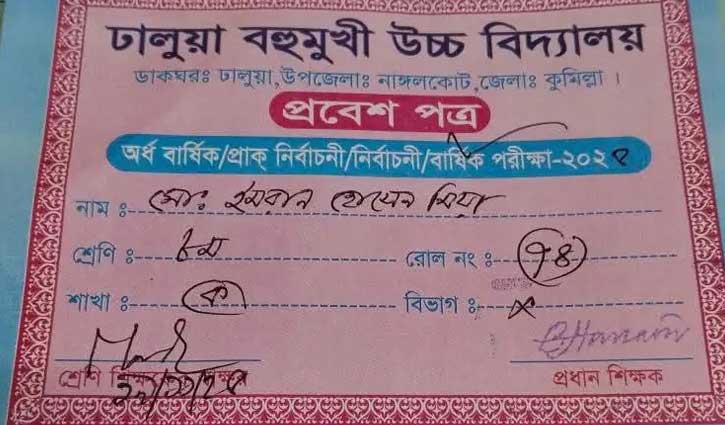 ঢালুয়া বহুমুখী উচ্চ বিদ্যালয়
ডাকঘরঃ ঢালুয়া,উপজেলাঃ নাঙ্গলকোট,জেলাঃ কুমিল্লা ।
প্রবেশ পত্র
অর্ধ বার্ষিক/প্রাক্ নির্বাচনী/নির্বাচনী/বার্ষিক পরীক্ষা-২০২
নাম ঃ মোঃ ইমরান হোসেন মিয়া
শ্রেণি ঃ ৮ম রোল নং ঃ ৭৪
শাখা ঃ ক বিভাগ ঃ ×
প্রধান শিক্ষক
শ্রেণি